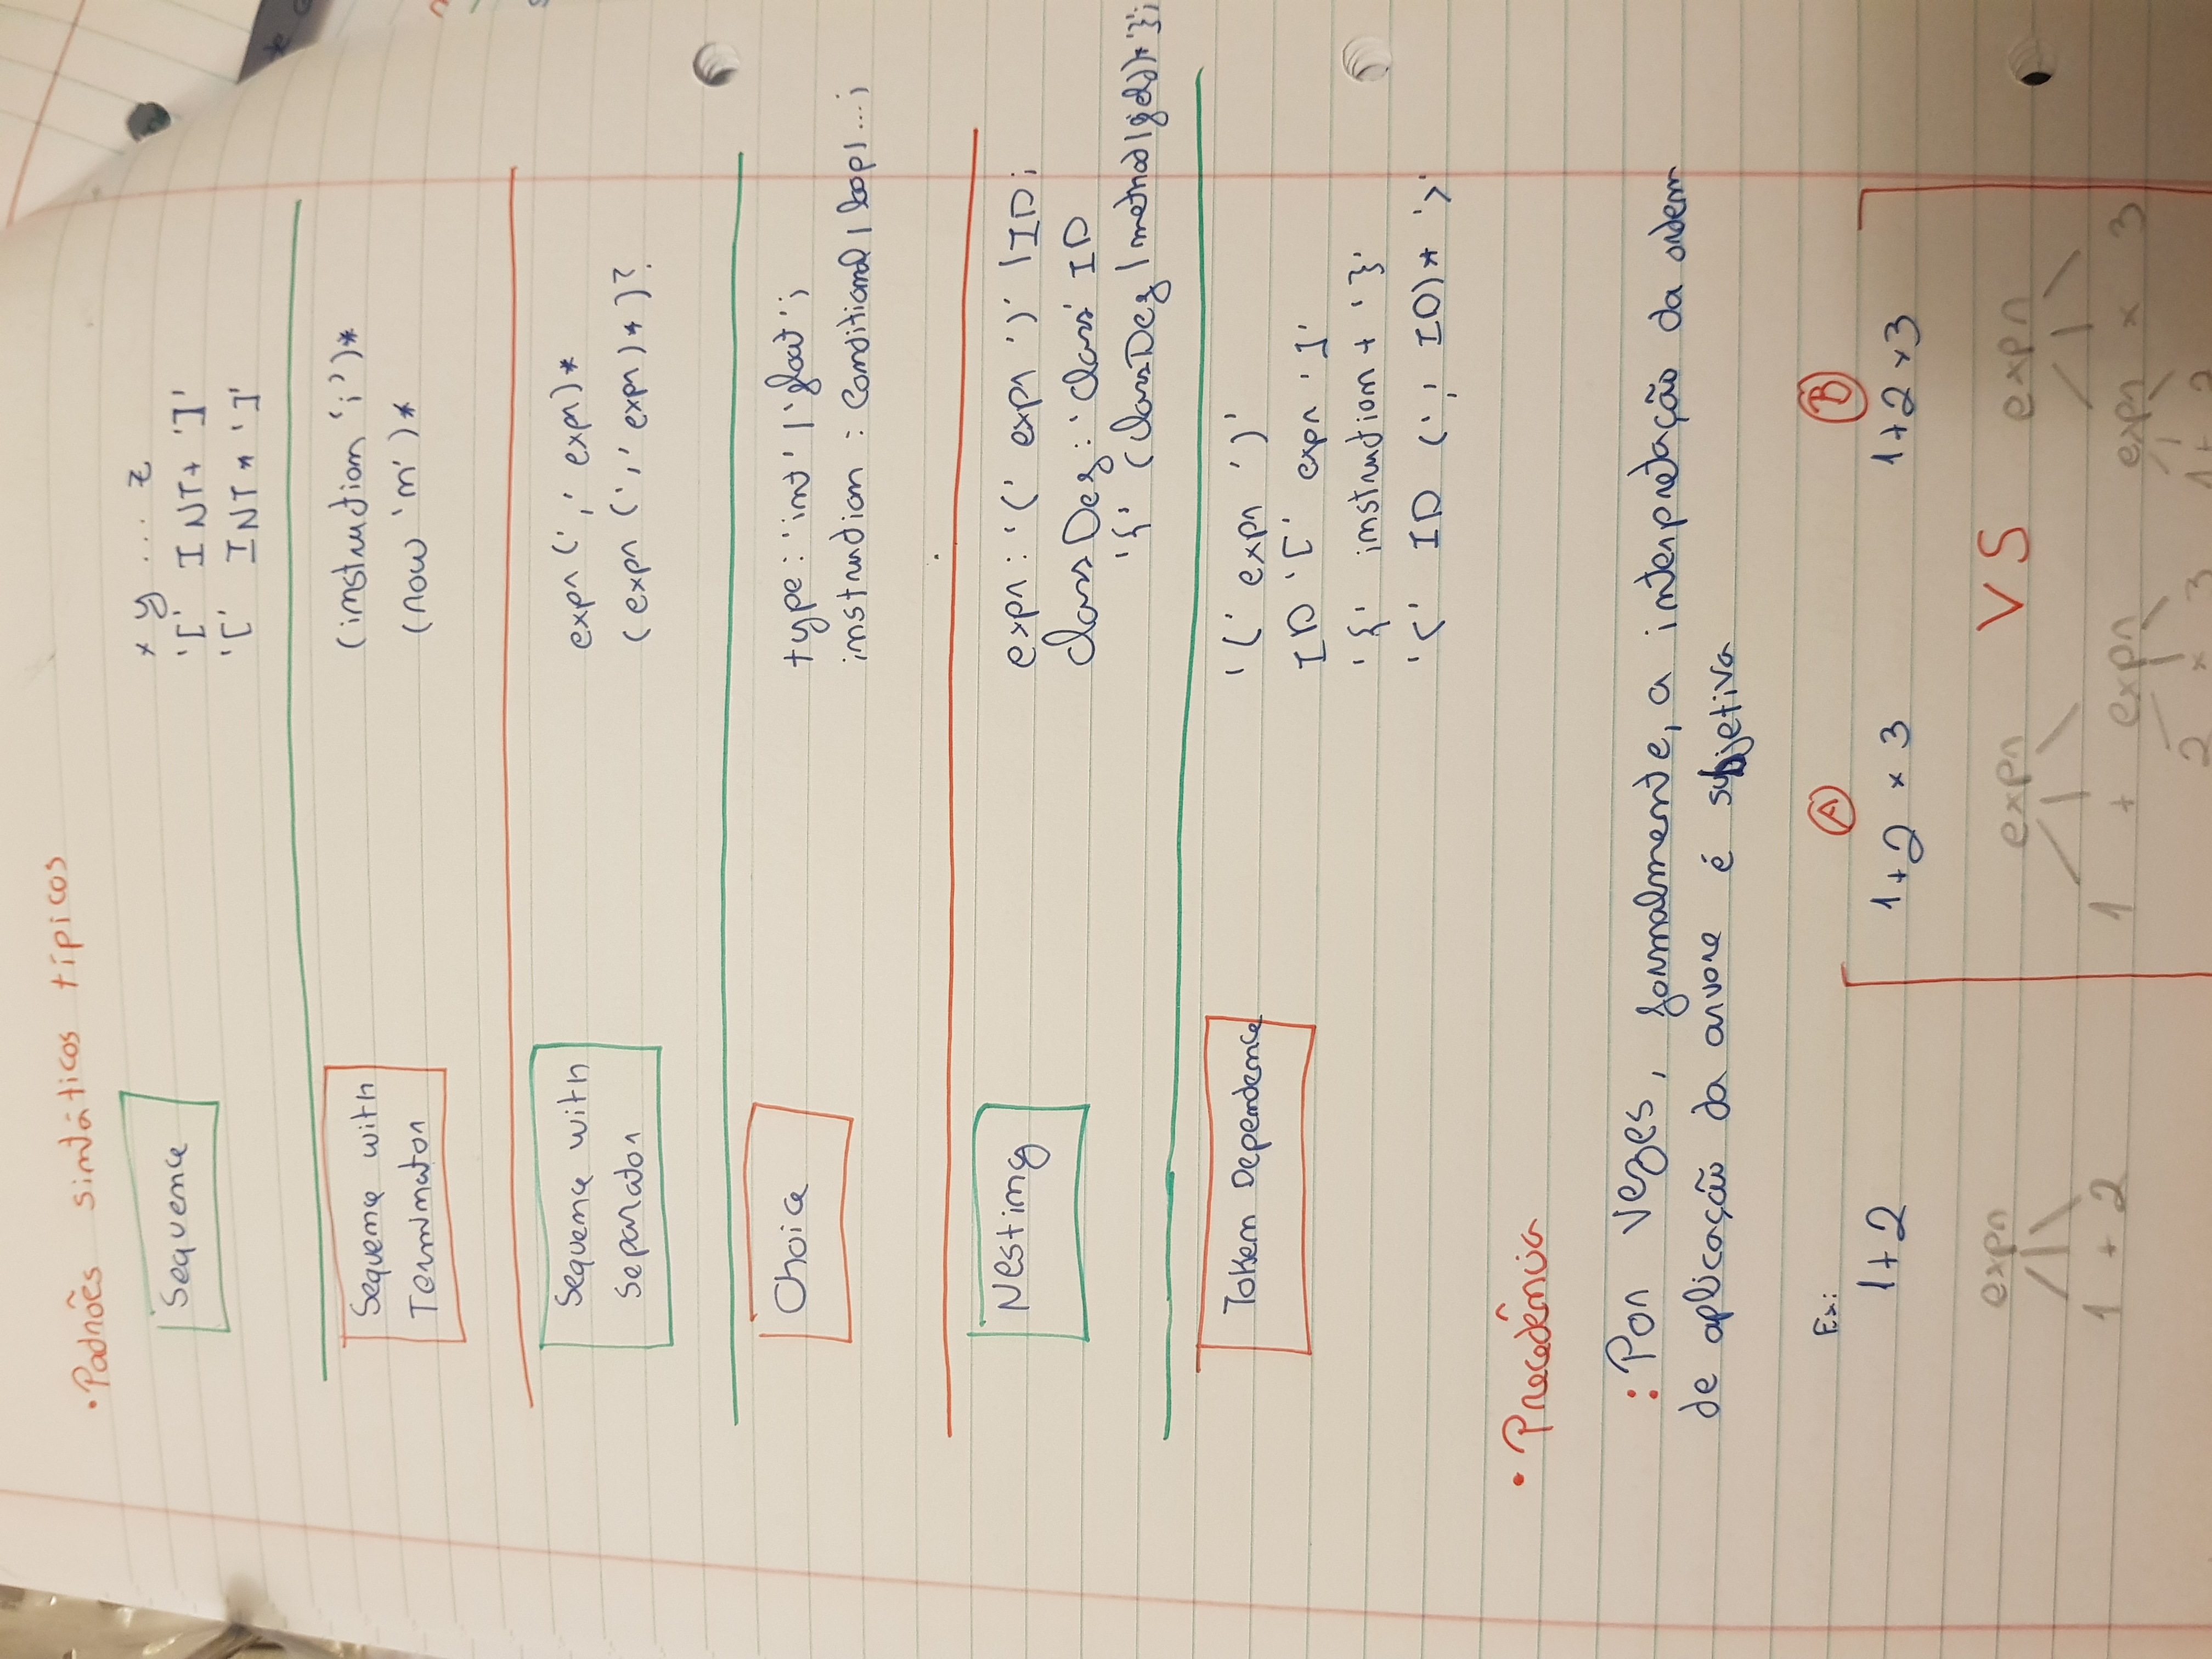 • Padrões sintáticos típicos
Sequence
x y ... z
'[' INT+ ']'
'[' INT* ']'
Sequence with
Terminator
(instruction ';')*
(row 'n')*
Sequence with
Separator
expr (',' expr)*
(expr (',' expr)*)?
Choice
type: 'int' | 'float';
instruction : Conditional | loop | ... ;
Nesting
expr: '(' expr ')' | ID;
classDef: 'class' ID
'{' (classDef | method | field)* '}';
Token Dependence
'(' expr ')'
ID '[' expr ']'
'{' instruction + '}'
'<' ID (', ID)* '>'
• Precedência
: Por vezes, formalmente, a interpretação da ordem
de aplicação da arvore é subjetiva
Ex:
A
B
1+2
1+2 x 3
1+2 x 3
VS
expr
expr
expr
1 + 2
1 + expr
expr x 3
2 x 3
1 + 2